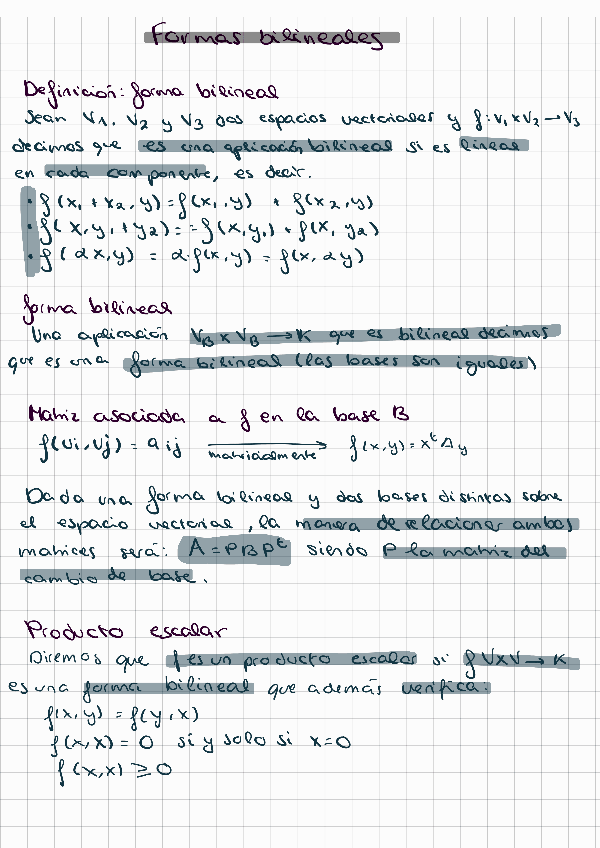 Formas bilineales
Definición: forma bilineal
Sean V1, V2 y V3 dos espacios vectoriales y f: V1 x V2 → V3
decimos que es una aplicación bilineal si es lineal
en cada componente, es decir.
• f(x1 + x2, y) = f(x1, y) + f(x2, y)
• f(x, y1 + y2) = = f(x, y1) + f(x, y2)
• f(αx, y) = α·f(x, y) = f(x, αy)
forma bilineal
Una aplicación VB x VB → K que es bilineal decimos
que es una forma bilineal (las bases son iguales)
Matriz asociada a f en la base B
f(ui, uj) = aij matricialmente→ f(x,y) = x^t A y
Dada una forma bilineal y dos bases distintas sobre
el espacio vectorial, la manera de relacionar ambas
matrices será: A = PBP^t siendo P la matriz del
cambio de base.
Producto escalar
Diremos que f es un producto escalar si f V x V → K
es una forma bilineal que además verifica:
f(x, y) = f(y, x)
f(x, x) = 0 si y solo si x = 0
f(x, x) ≥ 0